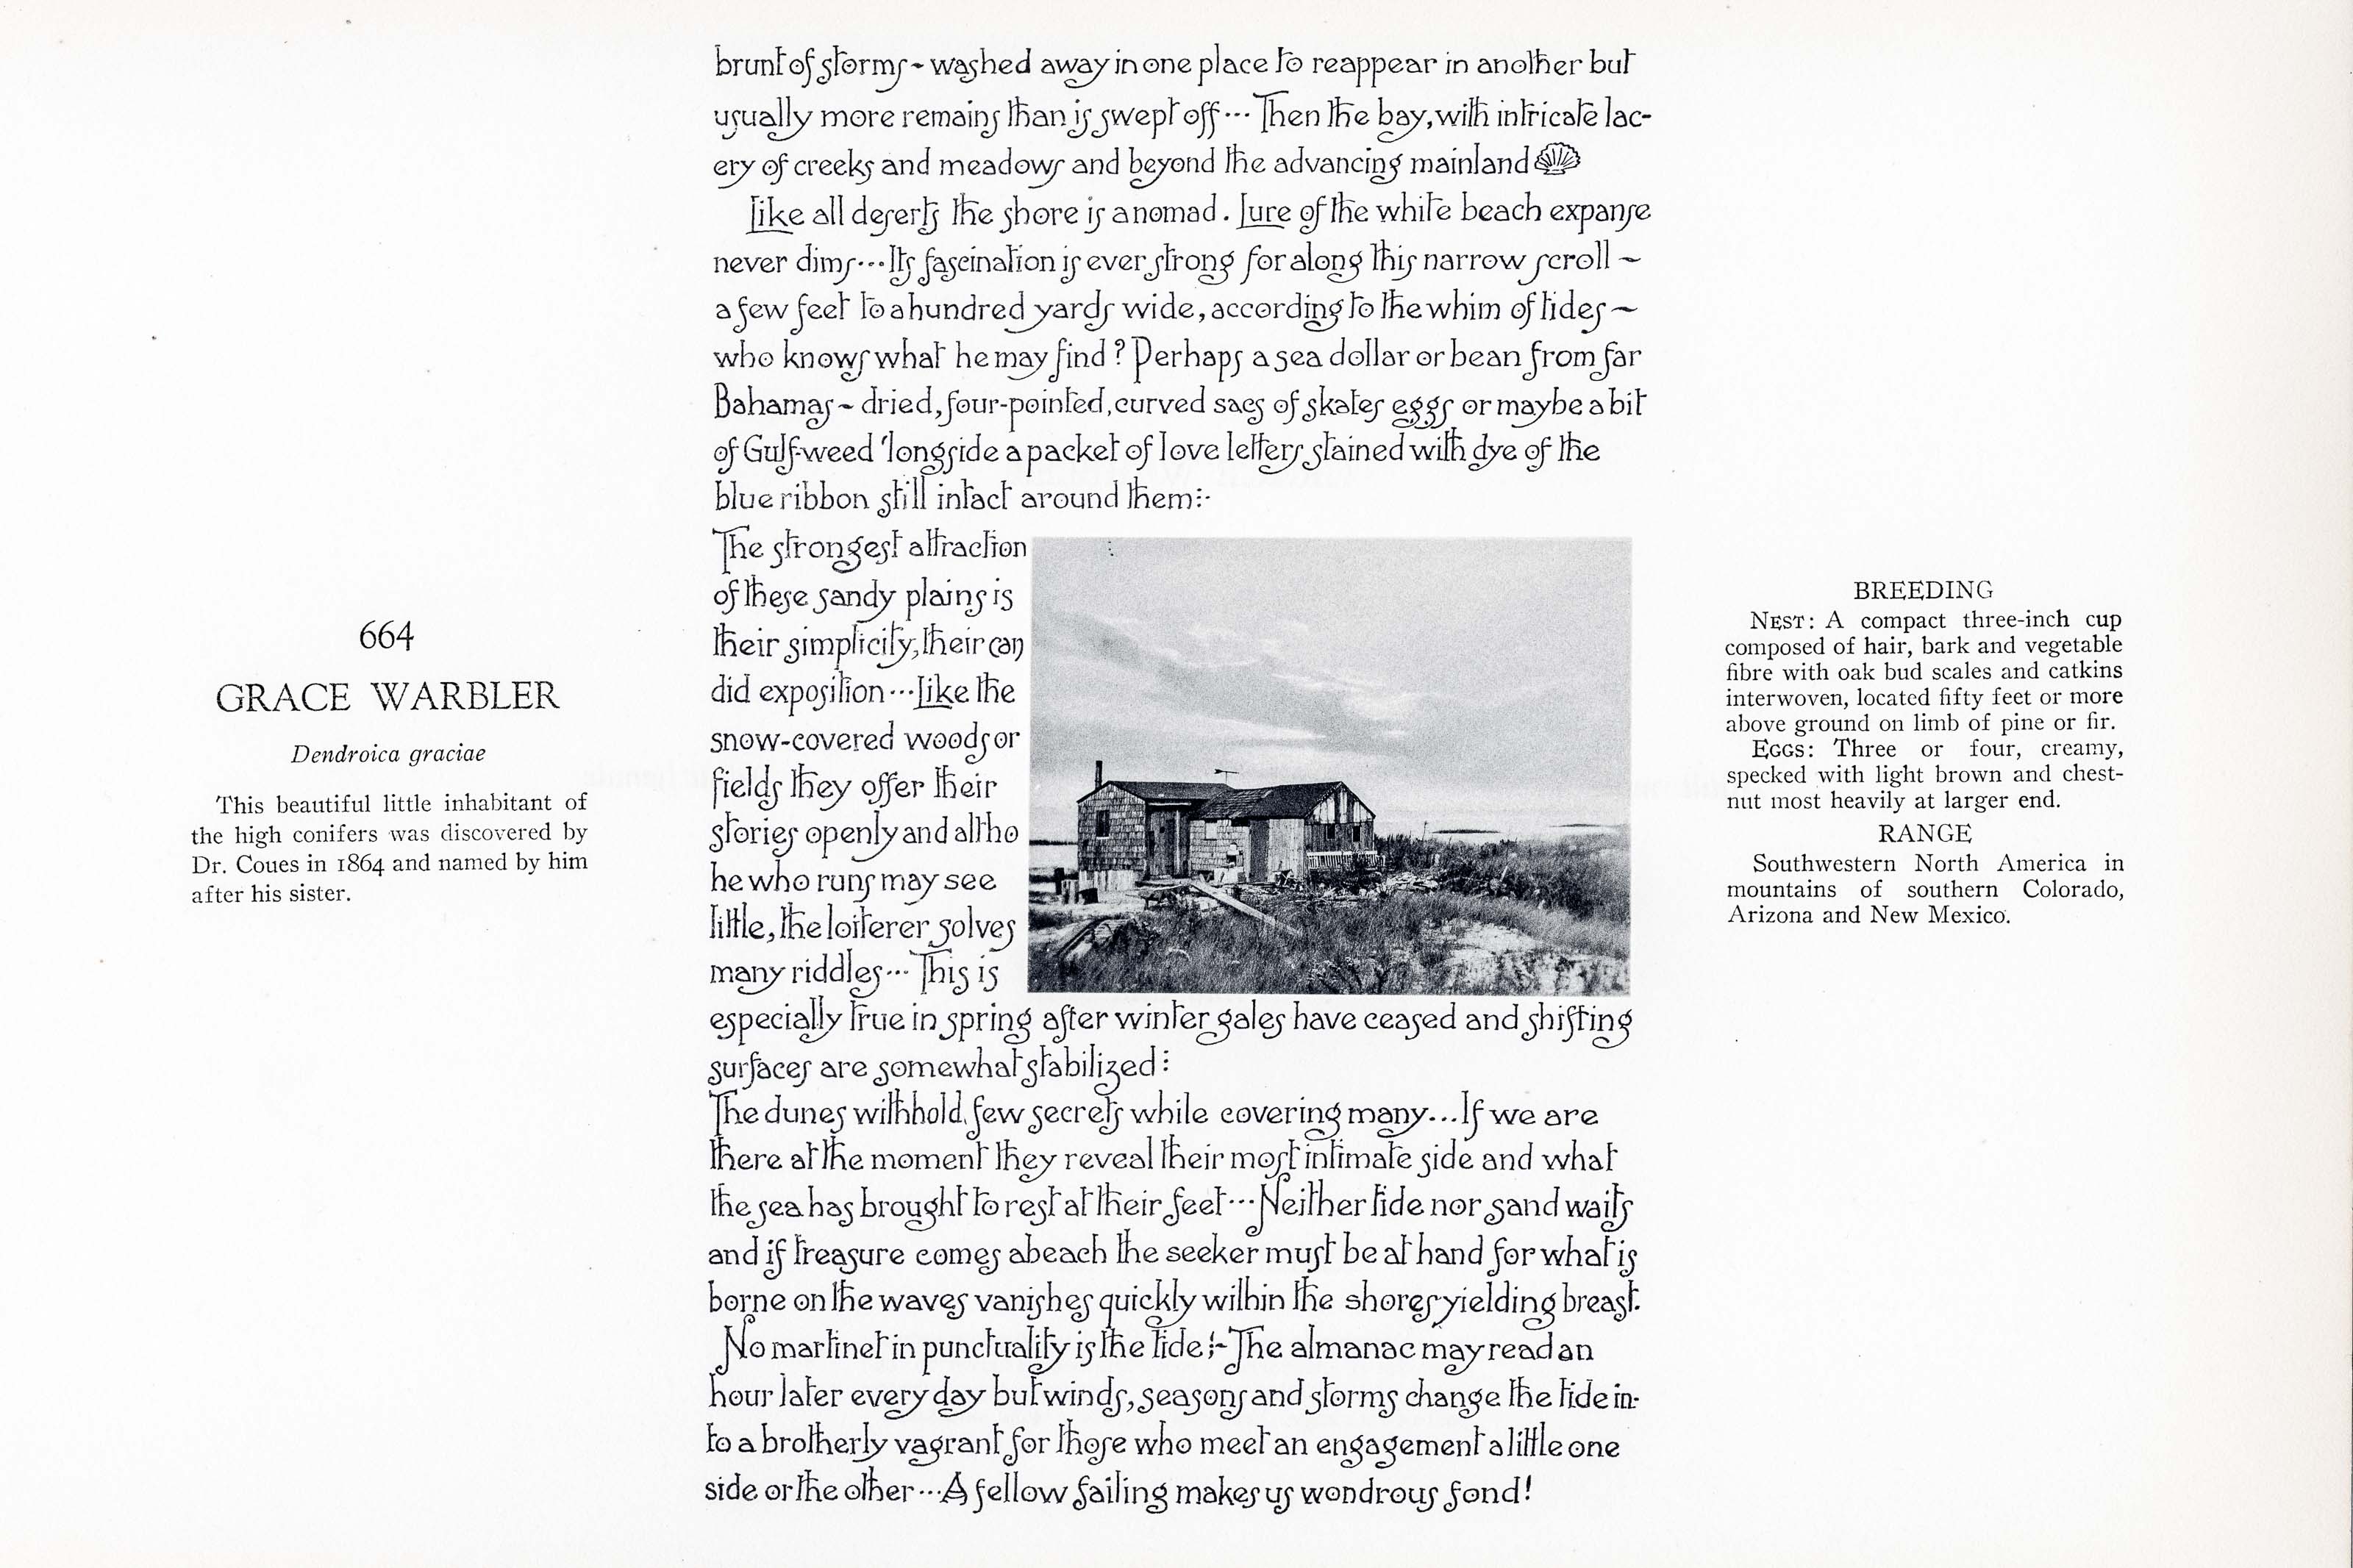 664
GRACE WARBLER
Dendroica graciae
This beautiful little inhabitant of
the high conifers was discovered by
Dr. Coues in 1864 and named by him
after his sister.
brunt of storms ~ washed away in one place to reappear in another but
usually more remains than is swept off ... Then the bay, with intricate lac-
ery of creeks and meadows and beyond the advancing mainland
Like all deserts the shore is a nomad. Lure of the white beach expanse
never dims ... Its fascination is ever strong for along this narrow scroll ~
a few feet to a hundred yards wide, according to the whim of tides ~
who knows what he may find? Perhaps a sea dollar or bean from far
Bahamas ~ dried, four-pointed, curved sacs of skates eggs or maybe a bit
of Gulf-weed 'longside a packet of love letters stained with dye of the
blue ribbon still intact around them:-
The strongest attraction
of these sandy plains is
their simplicity, their can
did exposition ... Like the
snow-covered woods or
fields they offer their
stories openly and altho
he who runs may see
little, the loiterer solves
many riddles ... This is
especially true in spring after winter gales have ceased and shifting
surfaces are somewhat stabilized:
The dunes withhold few secrets while covering many ... If we are
there at the moment they reveal their most intimate side and what
the sea has brought to rest at their feet ... Neither tide nor sand waits
and if treasure comes abeach the seeker must be at hand for what is
borne on the waves vanishes quickly within the shores yielding breast.
No martinet in punctuality is the tide:- The almanac may read an
hour later every day but winds, seasons and storms change the tide in-
to a brotherly vagrant for those who meet an engagement a little one
side or the other ... A fellow failing makes us wondrous fond!
BREEDING
NEST: A compact three-inch cup
composed of hair, bark and vegetable
fibre with oak bud scales and catkins
interwoven, located fifty feet or more
above ground on limb of pine or fir.
EGGS: Three or four, creamy,
specked with light brown and chest-
nut most heavily at larger end.
RANGE
Southwestern North America in
mountains of southern Colorado,
Arizona and New Mexico.